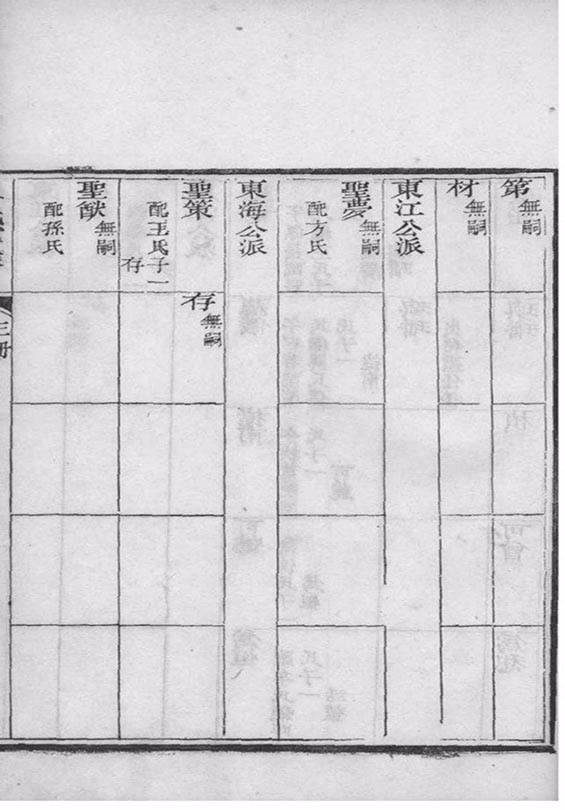 第無嗣
材無嗣
東江公派
聖夢無嗣
配方氏
東海公派
聖策
配王氏子一
存
存無嗣
聖猷無嗣
配孫氏
三冊